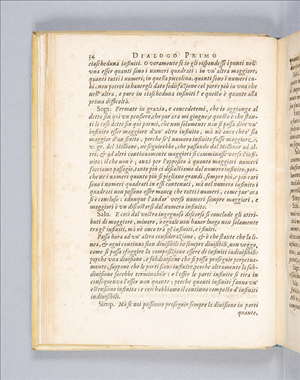 34 DIALOGO PRIMO
ciascheduna infiniti. O veramente se io gli rispondessi i punti nell'
vna esser quanti sono i numeri quadrati: in vn'altra maggiore,
quanti tutti i numeri, in questa piccolina, quanti sono i numeri cu-
bi, non potrei io hauergli dato sodisfazione col porne più in vna che
nell'altra, e pure in ciascheduna infiniti? e questo è quanto alla
prima difficoltà.
Sagr. Fermate in grazia, e concedetemi, che io aggiunga al
detto sin quì vn pensiero, che pur ora mi giugne; e questo è che stan-
ti le cose dette sin quì parmi, che non solamente non si possa dire vn'
infinito esser maggiore d'un'altro infinito, mà nè anco che e' sia
maggior d'un finito, perche se'l numero infinito fusse maggiore,
v. g. del Millione, ne seguirebbe, che passando dal Millione ad al-
tri, & ad altri continuamente maggiori si camminasse verso l'infi-
nito: il che non è; anzi per l'opposito à quanto maggiori numeri
facciamo passaggio, tanto più ci discostiamo dal numero infinito; per-
che ne i numeri quanto più si pigliano grandi, sempre più, e più rari
sono i numeri quadrati in essi contenuti, mà nel numero infinito i
quadrati non possono esser manco che tutti i numeri, come pur'ora
si è concluso: adunque l'andar verso numeri sempre maggiori, e
maggiori è vn discostarsi dal numero infinito.
Salu. E così dal vostro ingegnoso discorso si conclude gli attri-
buti di maggiore, minore, ò eguale non hauer luogo non solamente
trà gl'infiniti, mà nè anco trà gl'infiniti, e i finiti.
Passo hora ad vn'altra considerazione, & è che stante che la li-
nea, & ogni continuo sian diuisibili in sempre diuisibili, non veggo,
come si possa sfuggire la composizione essere di infiniti indiuisibili:
perche vna diuisione, e subdiuisione che si possa proseguir perpetua-
mente, suppone che le parti siano infinite, perche altramente la sub-
diuisione sarebbe terminabile: e l'esser le parti infinite si tira in
conseguenza l'esser non quante; perche quanti infiniti fanno vn'
estensione infinita: e così habbiamo il continuo composto d'infiniti
indiuisibili.
Simp. Mà se noi possiamo proseguir sempre la diuisione in parti
quante,